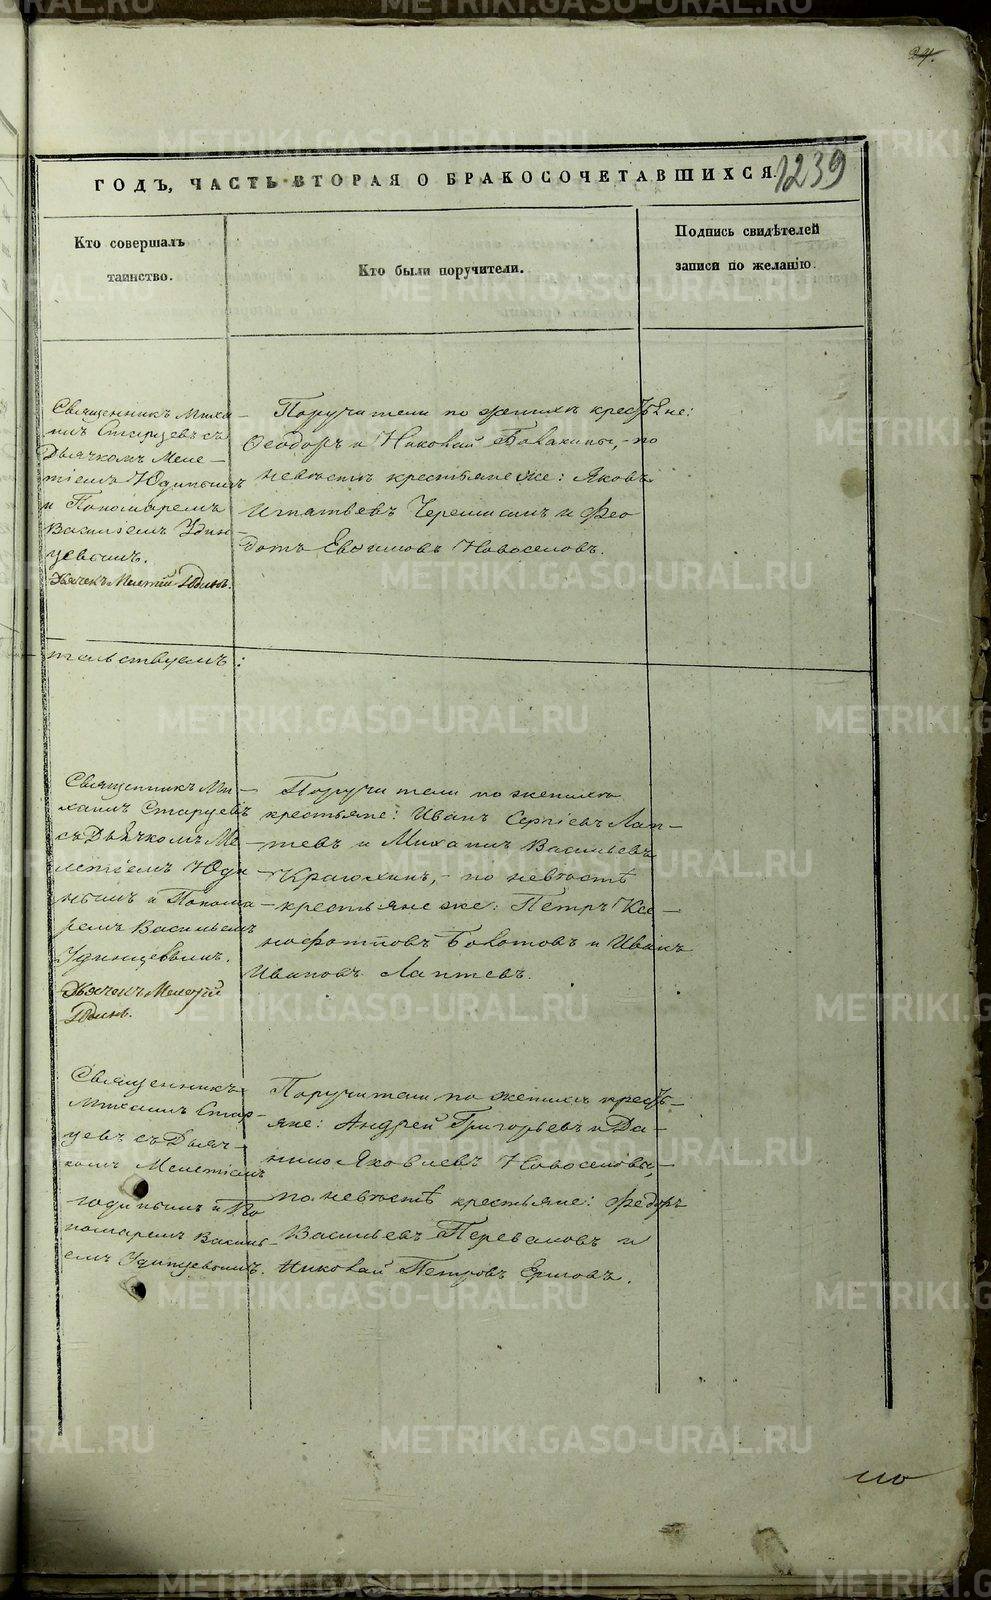 24.
1239
ГОДЪ, ЧАСТЬ ВТОРАЯ О БРАКОСОЧЕТАВШИХСЯ.
Кто совершалъ
таинство.
Кто были поручители.
Подпись свидѣтелей
записи по желанію.
Священникъ Миха-
илъ Старцевъ съ
Дьячкомъ Меле-
тіемъ Юдинымъ
и Пономаремъ
Василіемъ Удин-
цевымъ.
Дьячекъ Мелетій Юдинъ.
Поручители по женихѣ крестьяне:
Ѳеодоръ и Николай Балакины, - по
невѣстѣ крестьяне же: Яковъ
Игнатьевъ Черемисинъ и Фео
дотъ Евѳимовъ Новоселовъ.
тельствуемъ:
Священникъ Ми-
хаилъ Старцевъ
съ Дьячкомъ Ме-
летіемъ Юди
нымъ и Понома-
ремъ Васильемъ
Удинцевымъ.
Дьячекъ Мелетій
Юдинъ.
Поручители по женихѣ
крестьяне: Иванъ Сергіевъ Лап-
тевъ и Михаилъ Васильевъ
по невѣстѣ
крестьяне же: Петръ Ксе-
нофонтовъ Болотовъ и Иванъ
Ивановъ Лаптевъ.
Священникъ
Михаилъ Стар-
цевъ съ Дьяч-
комъ Мелетіемъ
Юдинымъ и По
номаремъ Василь-
емъ Удинцевымъ.
Поручители по женихѣ кресть-
яне: Андрей Григорьевъ и Да-
нило Яковлевъ Новоселовы,-
по невѣстѣ крестьяне: Федоръ
Васильевъ Переваловъ и
Николай Петровъ Ершовъ.
METRIKI.GASO-URAL.RU